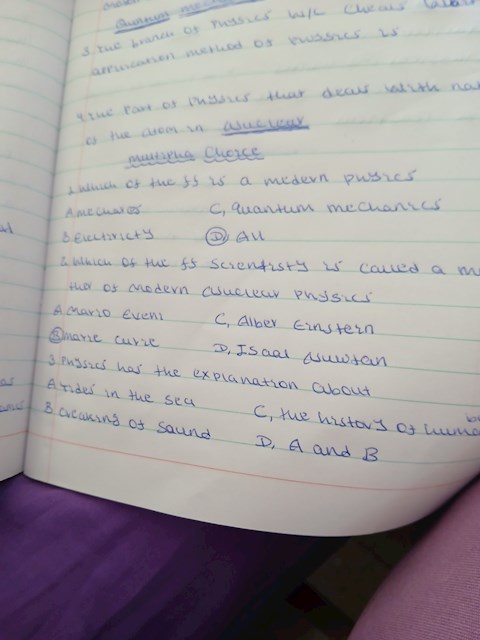 Quantum mech
3. The branch of Physics w/c
application method of Physics is
4. The Part of Physics that deals with na
of the atom in Nuclear
Multipha Choice
1. Which of the ff is a modern physics
A Mechanics C, quantum mechanics
B Electricity D, All
2. Which of the ff Scientisty is called a m
ther of modern Nuclear Physics
A Mario Eveni C, Alber Einstern
B marie curie D, Isaal Nuwtan
3 Physics has the explanation about
A Tides in the sea C, the history of huma
B Creaking of Saund D, A and B